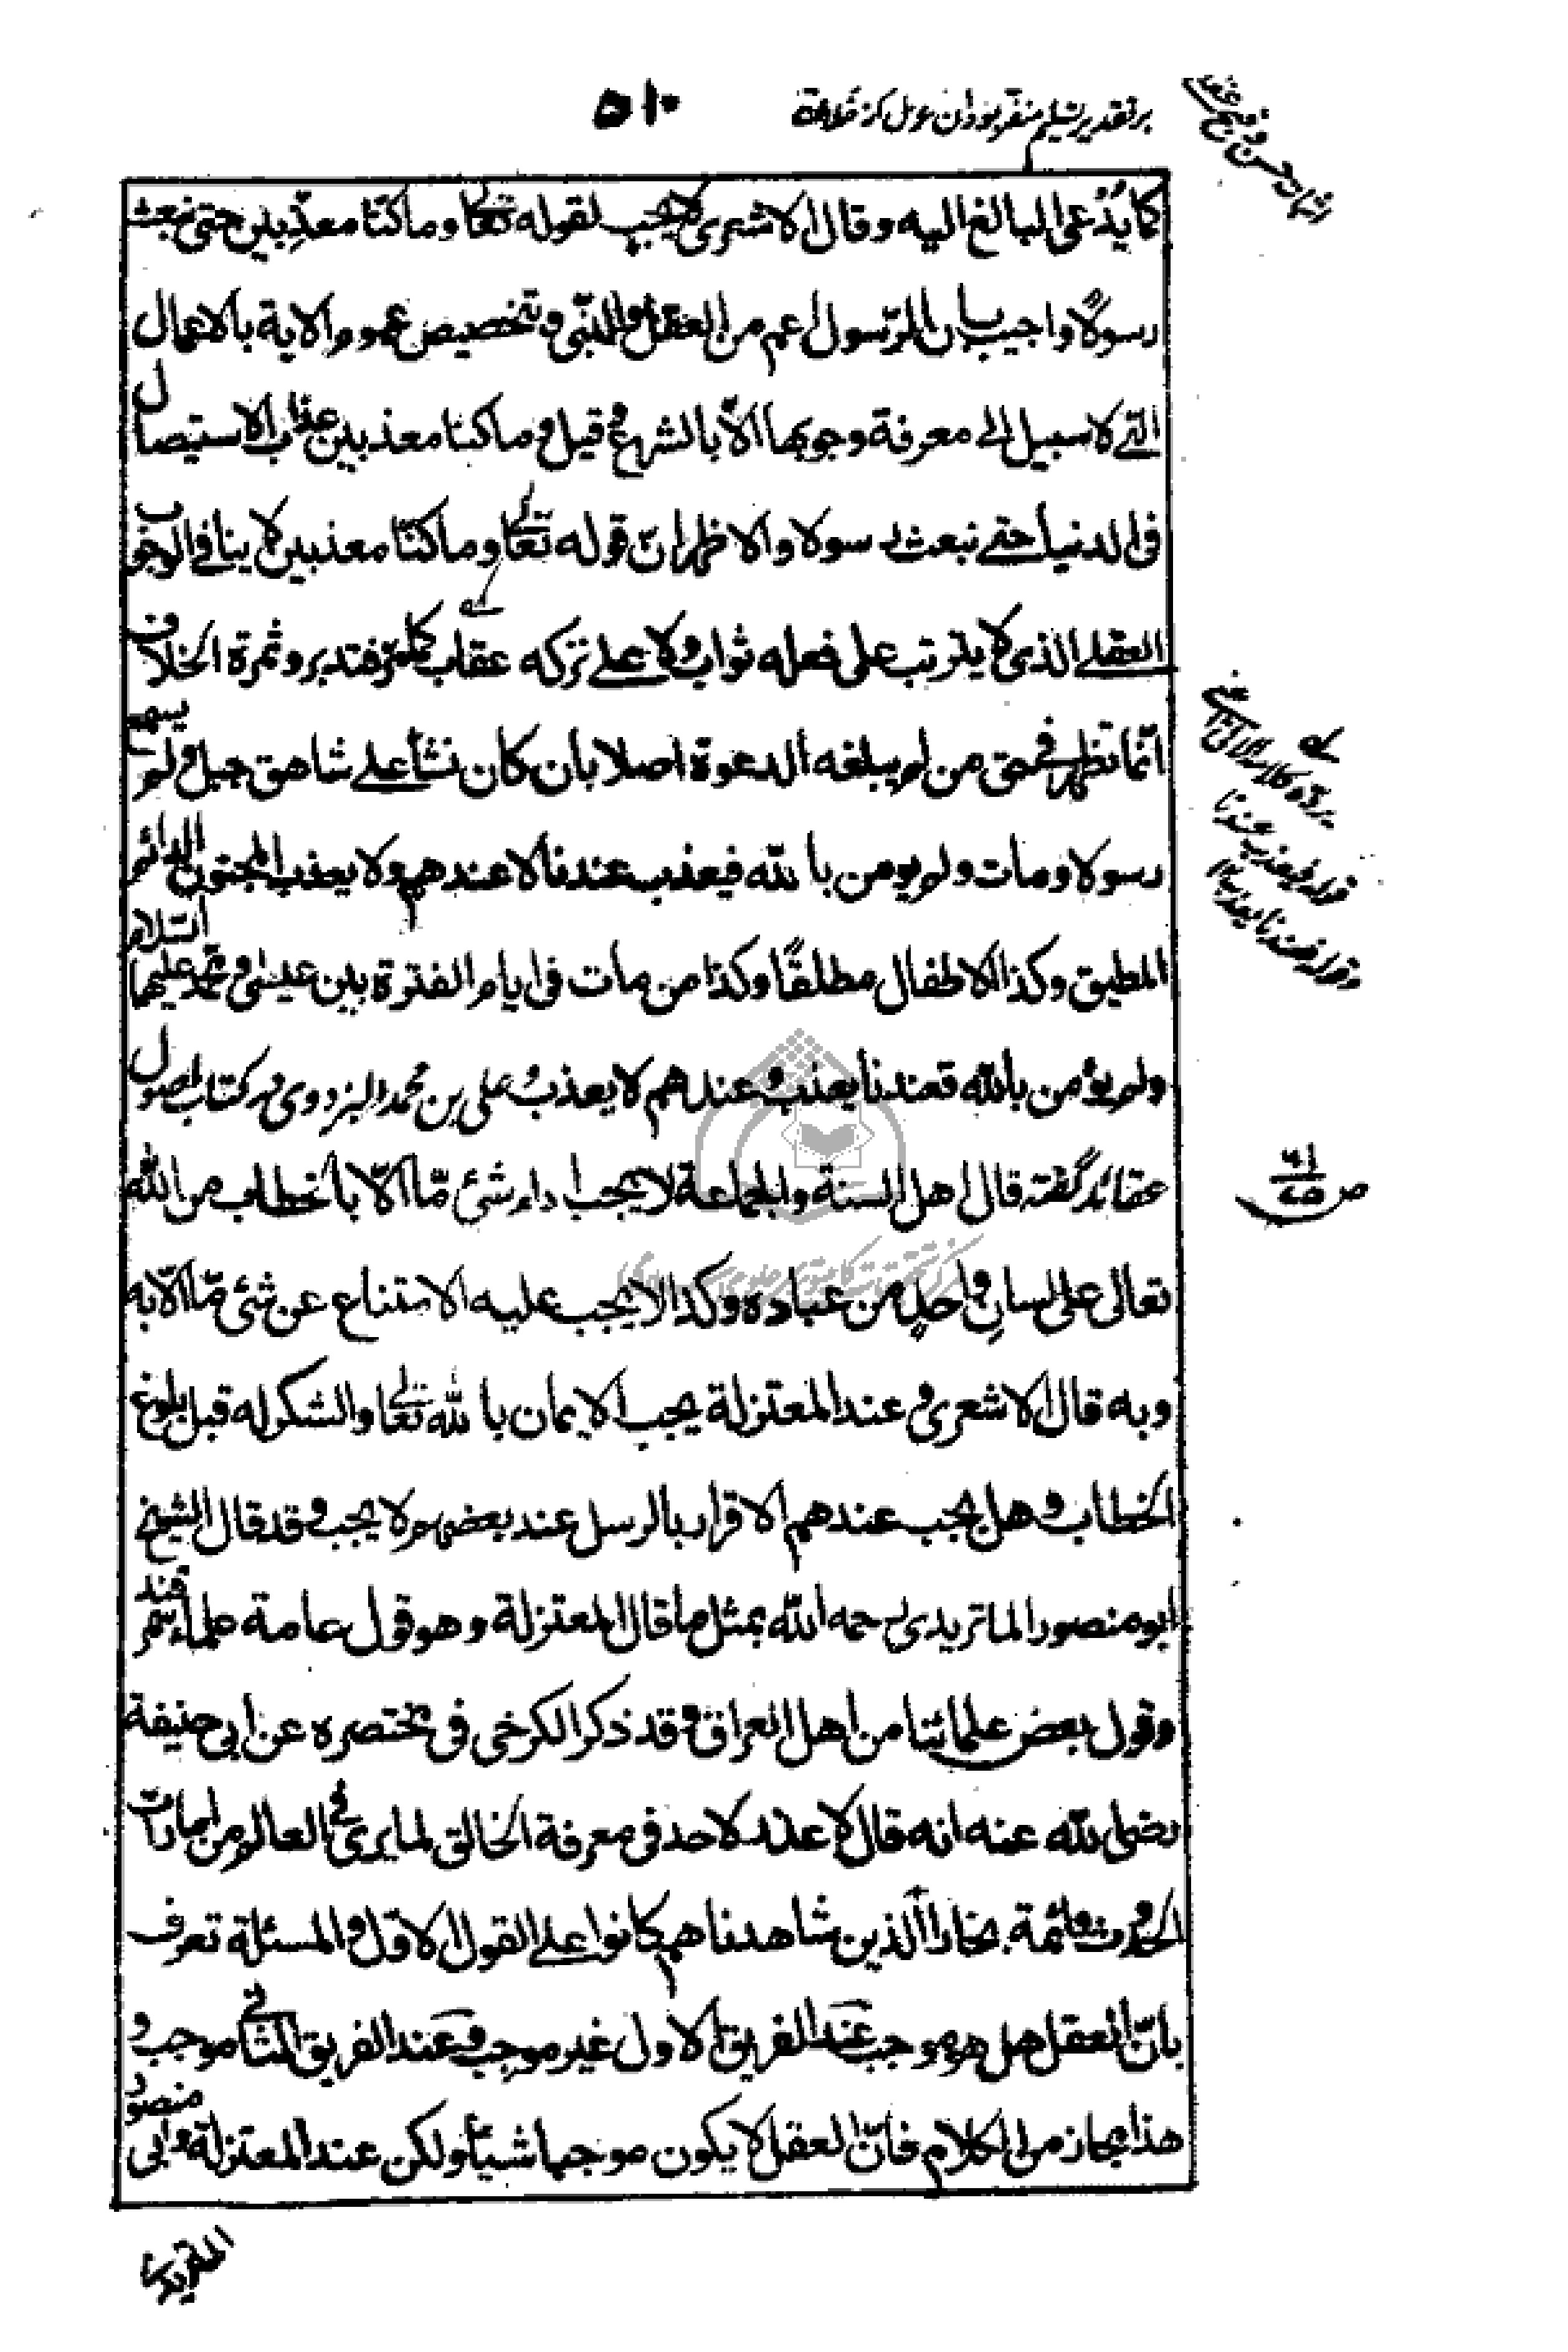 ۵۱۰
بر تقدیر تسلیم منقر بودان عمل کز خلافة
كما يُدْعى البالغ اليه وقال الاشعرى لا يجب لقوله تعالى وما كنّا معذّبين حتى نبعث
رسولًا واجيب بان الرّسول اعم من العقل والنّبى وتخصيص عموم الاية بالاعمال
التى لا سبيل الى معرفة وجوبها الّا بالشرع وقيل وما كنا معذبين عذاب الاستيصال
فى الدنيا حتى نبعث رسولا والاظهر ان قوله تعالى وما كنّا معذبين لا ينافى الوجوب
العقلى الذى لا يترتب على فعله ثواب ولا على تركه عقاب كما مرّ فتدبر وثمرة الخلاف
انّما تظهر فى حق من لم يبلغه الدعوة اصلا بان كان نشأ على شاهق جبل ولم يسمع
رسولا ومات ولم يومن بالله فيعذب عندنا لا عندهم ولا يعذب المجنون الدائم
المطبق وكذا الاطفال مطلقًا وكذا من مات فى ايام الفترة بين عيسى ومحمد عليهما السلام
ولم يؤمن بالله فعندنا يعذب وعندهم لا يعذب و على بن محمد البزدوى در كتاب اصول
عقائد گفته قال اهل السنة والجماعة لا يجب اداء شئ مّا الّا بالخطاب من الله
تعالى على لسانِ واحدٍ من عباده وكذا لا يجب عليه الامتناع عن شئ مّا الّا به
وبه قال الاشعرى وعند المعتزلة يجب الايمان بالله تعالى والشكر له قبل بلوغ
الخطاب وهل يجب عندهم الاقرار بالرسل عند بعضهم لا يجب وقد قال الشيخ
ابو منصور الماتريدى رحمه الله بمثل ما قال المعتزلة وهو قول عامة علماء سمرقند
وقول بعض علمائنا من اهل العراق وقد ذكر الكرخى فى مختصره عن ابى حنيفة
رضى الله عنه انه قال لا عذر لاحد فى معرفة الخالق لما يرى فى العالم من امارات
الحدوث وائمة بخارا الذين شاهدناهم كانوا على القول الاول والمسئلة تعرف
بانّ العقل هل هو موجب عند الفريق الاول غير موجب وعند الفريق الثانى موجب و
هذا مجاز من الكلام فانّ العقل لا يكون موجبا شيأ ولكن عند المعتزلة وابى منصور
الماتريدى
ص ۴۱/۷۵